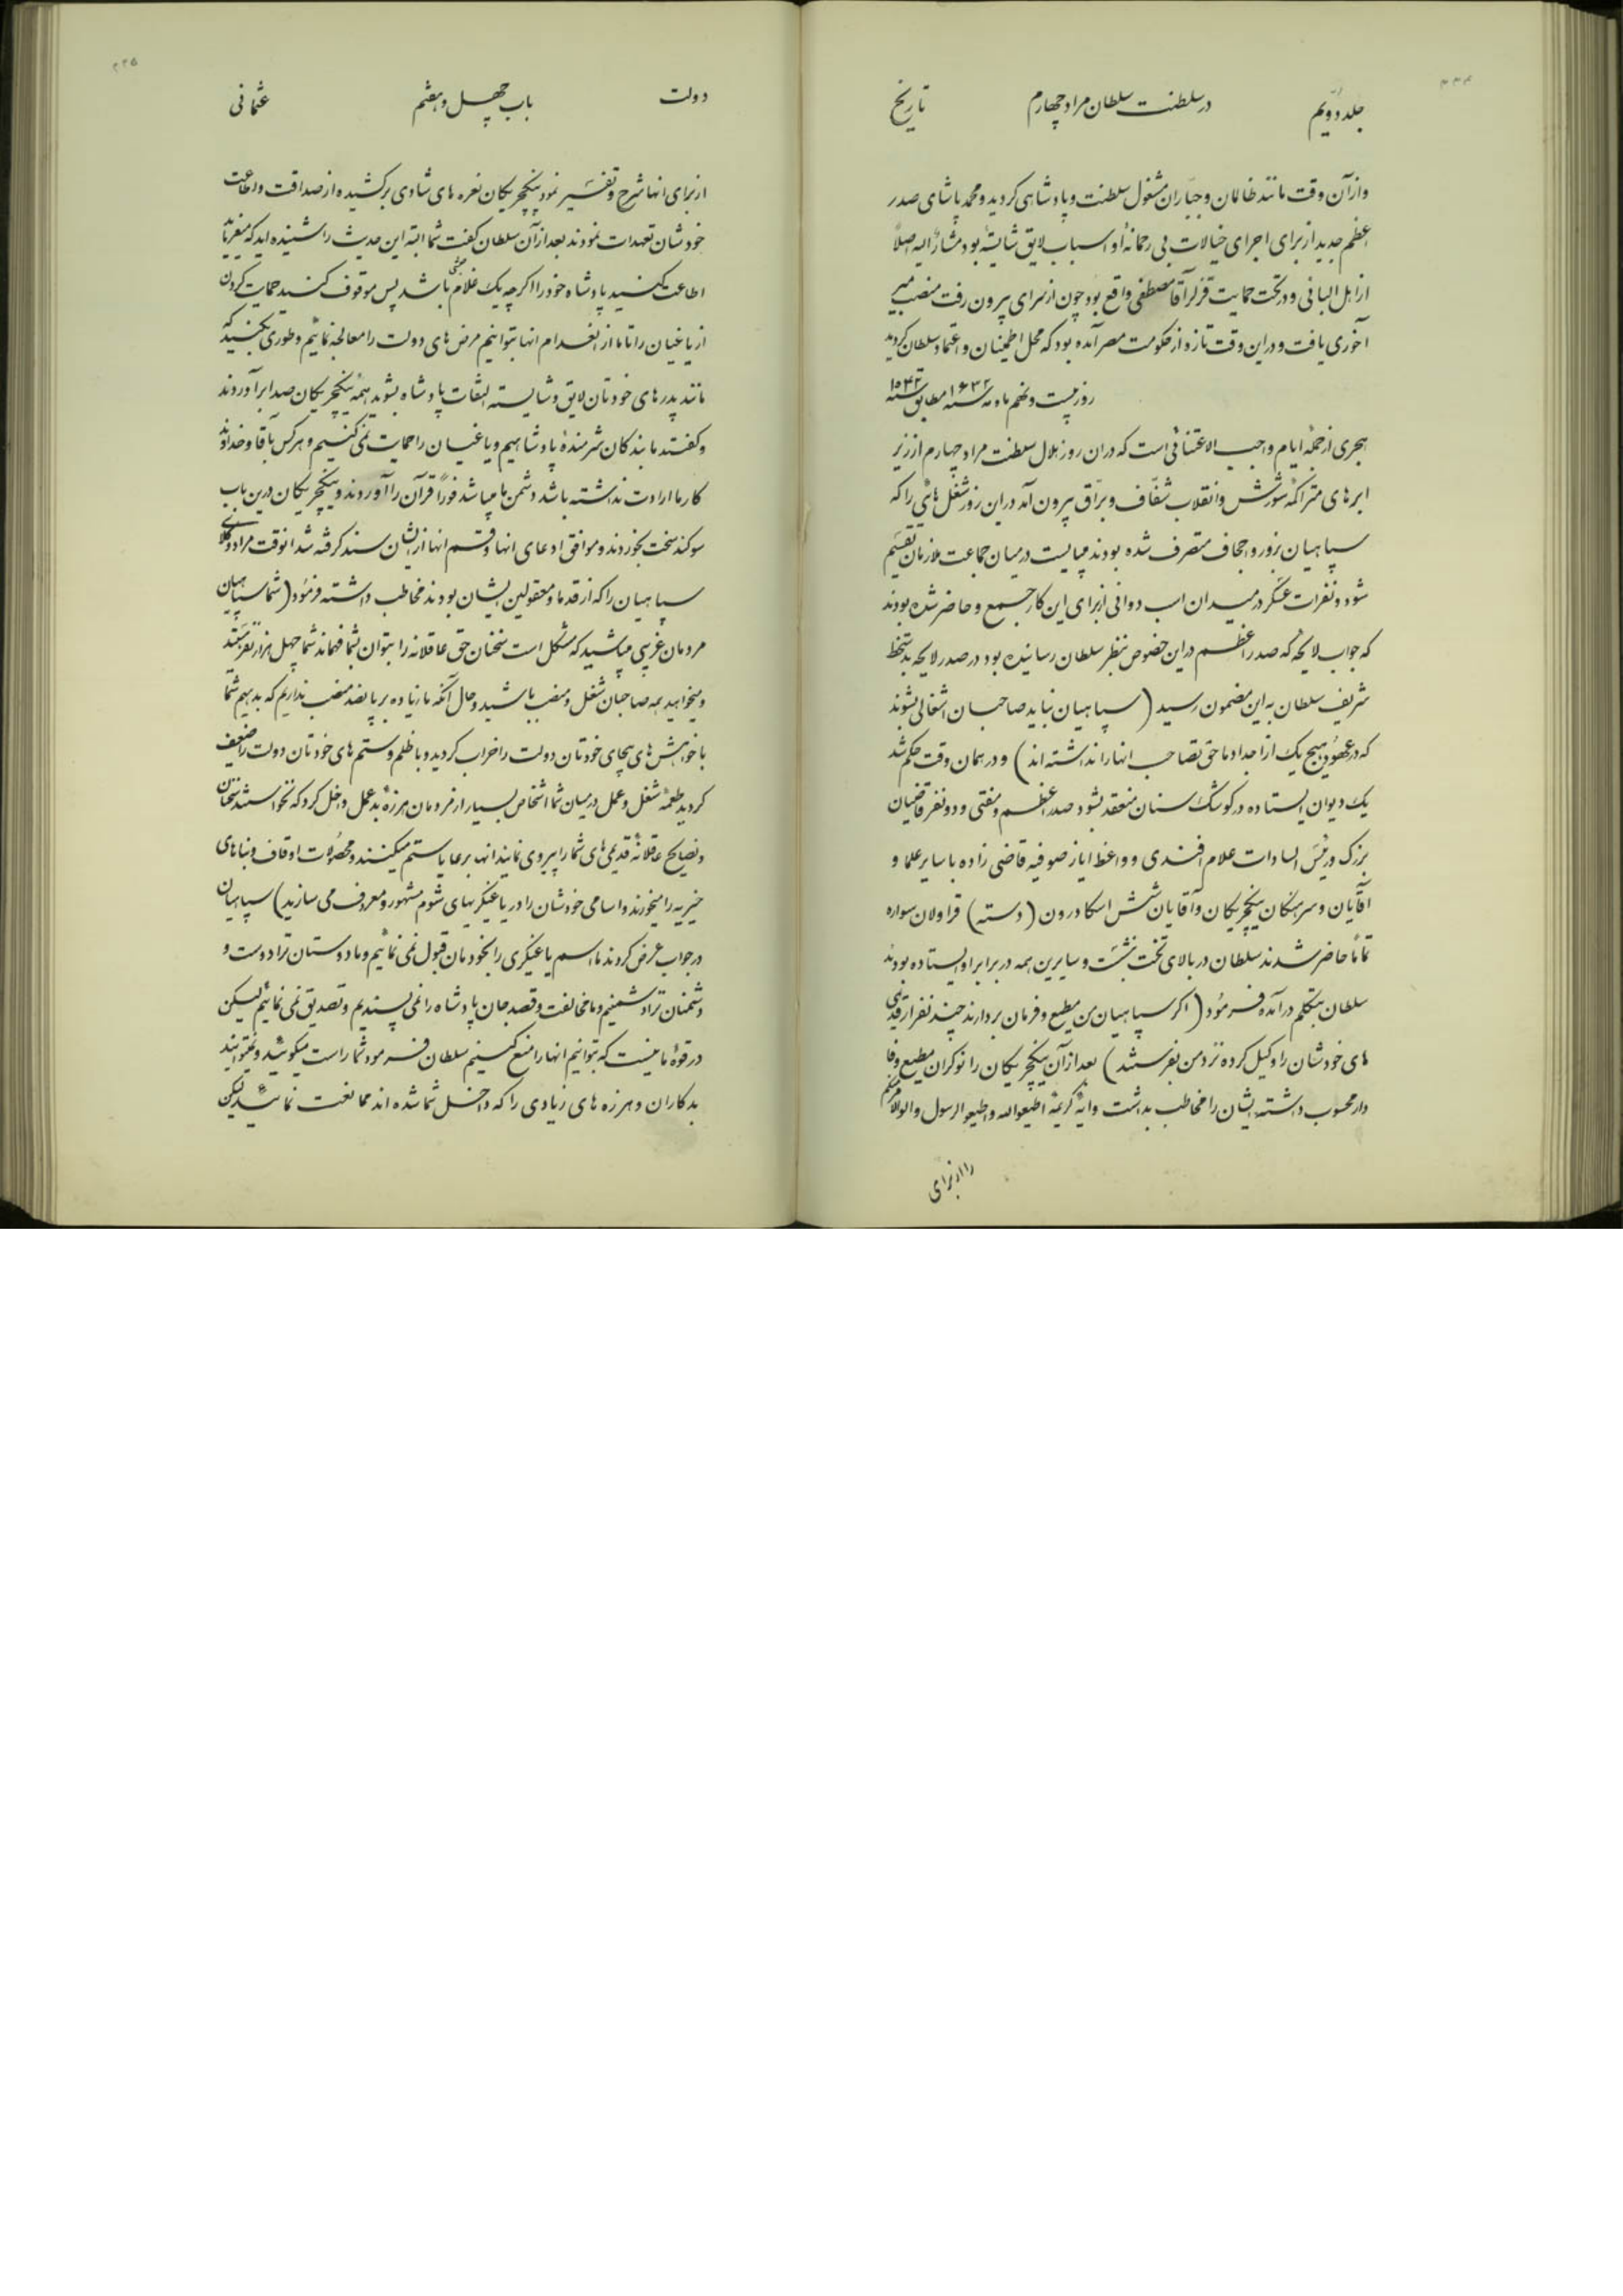 ۲۲۴
جلد دوّیم
در سلطنت سلطان مراد چهارم
تاریخ
و از آن وقت مانند ظالمان و جبّاران مشغول سلطنت و پادشاهی کردید و محمد پاشای صدر
اعظم جدید از برای اجرای خیالات بی رحمانهٔ او اسباب لایق شایسته بود مشارٌ الیه اصلاً
از اهل البانی و در تحت حمایت قزلر آقا مصطفی واقع بود چون از سرای بیرون رفت منصب میر
آخوری یافت و در این وقت تازه از حکومت مصر آمده بود که محل اطمینان و اعتماد سلطان کردید
روز بیست و نهم ماه مه سنه ۱۶۳۲ مطابق سنه ۱۰۴۲
هجری از جملهٔ ایام واجب الاعتنائی است که در ان روز هلال سلطنت مراد چهارم از زیر
ابرهای متراکمهٔ شورش و انقلاب شفّاف و برّاق بیرون آمد در این روز شغل هائی را که
سپاهیان بزور و اجحاف متصرف شده بودند میبایست در میان جماعت ملازمان تقسیم
شود و نفرات عسکر در میدان اسب دوانی از برای این کار جمع و حاضر شده بودند
که جواب لایحهٔ که صدر اعظم در این خصوص بنظر سلطان رسانیده بود در صدر لایحه بدستخط
شریف سلطان به این مضمون رسید (سپاهیان نباید صاحبان اشغالی بشوند
که در عهود هیچ یک از اجداد ما حق تصاحب انها را نداشته اند) و در همان وقت حکم شد
یک دیوان ایستاده در کوشک سنان منعقد بشود صدر اعظم و مفتی و دو نفر قاضیان
بزرک و رئیس السادات علام افندی و واعظ ایاز صوفیه قاضی زاده با سایر علما و
آقایان و سرهنکان ینکچریکان و آقایان شش اسکادرون (دسته) قراولان سواره
تماماً حاضر شدند سلطان در بالای تخت نشست و سایرین همه در برابر او ایستاده بودند
سلطان بتکلم درآمده فرمود (اکر سپاهیان من مطیع و فرمان بردارند چند نفر از قدیمی
های خودشان را وکیل کرده نزد من بفرستند) بعد از آن ینکچریکان را نوکران مطیع وفا
دار محسوب داشته ایشان را مخاطب بداشت و ایهٔ کریمهٔ اطیعو الله و اطیعو الرسول و اولو الامر منکم
را از برای
۲۲۵
دولت
باب چهل و هفتم
عثمانی
از برای انها شرح و تفسیر نمود ینکچریکان نعره های شادی برکشیده از صداقت و اطاعت
خودشان تعهدات نمودند بعد از آن سلطان کفت شما البته این حدیث را شنیده اید که میفرماید
اطاعت کنید پادشاه خود را اکرچه یک غلام حبشی باشد پس موقوف کنید حمایت کردن
از یاغیان را تا ما از انعدام انها بتوانیم مرض های دولت را معالجه نمائیم و طوری بکنید که
مانند پدرهای خودتان لایق و شایسته التفات پادشاه بشوید همهٔ ینکچریکان صدا برآوردند
و کفتند ما بندکان شرمندهٔ پادشاهیم و یاغیان را حمایت نمی کنیم و هر کس بآقا و خداوند
کار ما ارادت نداشته باشد دشمن ما میباشد فوراً قرآن را آوردند و ینکچریکان در این باب
سوکند سخت بخوردند و موافق ادعای انها و قسم انها از ایشان سند کرفته شد انوقت مراد وکلای
سپاهیان را که از قدما و معقولین ایشان بودند مخاطب داشته فرمود (شما سپاهیان
مردمان غریبی میباشید که مشکل است سخنان حق عاقلانه را بتوان بشما فهماند شما چهل هزار نفر هستید
و میخواهید همه صاحبان شغل و منصب باشید و حال آنکه ما زیاده بر پانصد منصب نداریم که بدهیم شما
با خواهش های بیجای خودتان دولت را خراب کردید و با ظلم و ستم های خودتان دولت را ضعیف
کردید طعمهٔ شغل و عمل در میان شما اشخاص بسیار از مردمان هرزهٔ بد عمل داخل کرد که نخواستند سخنان
و نصایح عاقلانهٔ قدیمی های شما را پیروی نمایند انها برعایا ستم میکنند و محصولات اوقاف و بناهای
خیریه را میخورند و اسامی خودشان را در یاغیکریهای شوم مشهور و معروف می سازند) سپاهیان
در جواب عرض کردند ما اسم یاغیکری را بخودمان قبول نمی نمائیم و ما دوستان ترا دوست و
دشمنان ترا دشمنیم و ما مخالفت و قصد جان پادشاه را نمی پسندیم و تصدیق نمی نمائیم لیکن
در قوهٔ ما نیست که بتوانیم انها را منع کنیم سلطان فرمود شما راست میکوئید و نمیتوانید
بدکاران و هرزه های زیادی را که داخل شما شده اند ممانعت نمائید لیکن